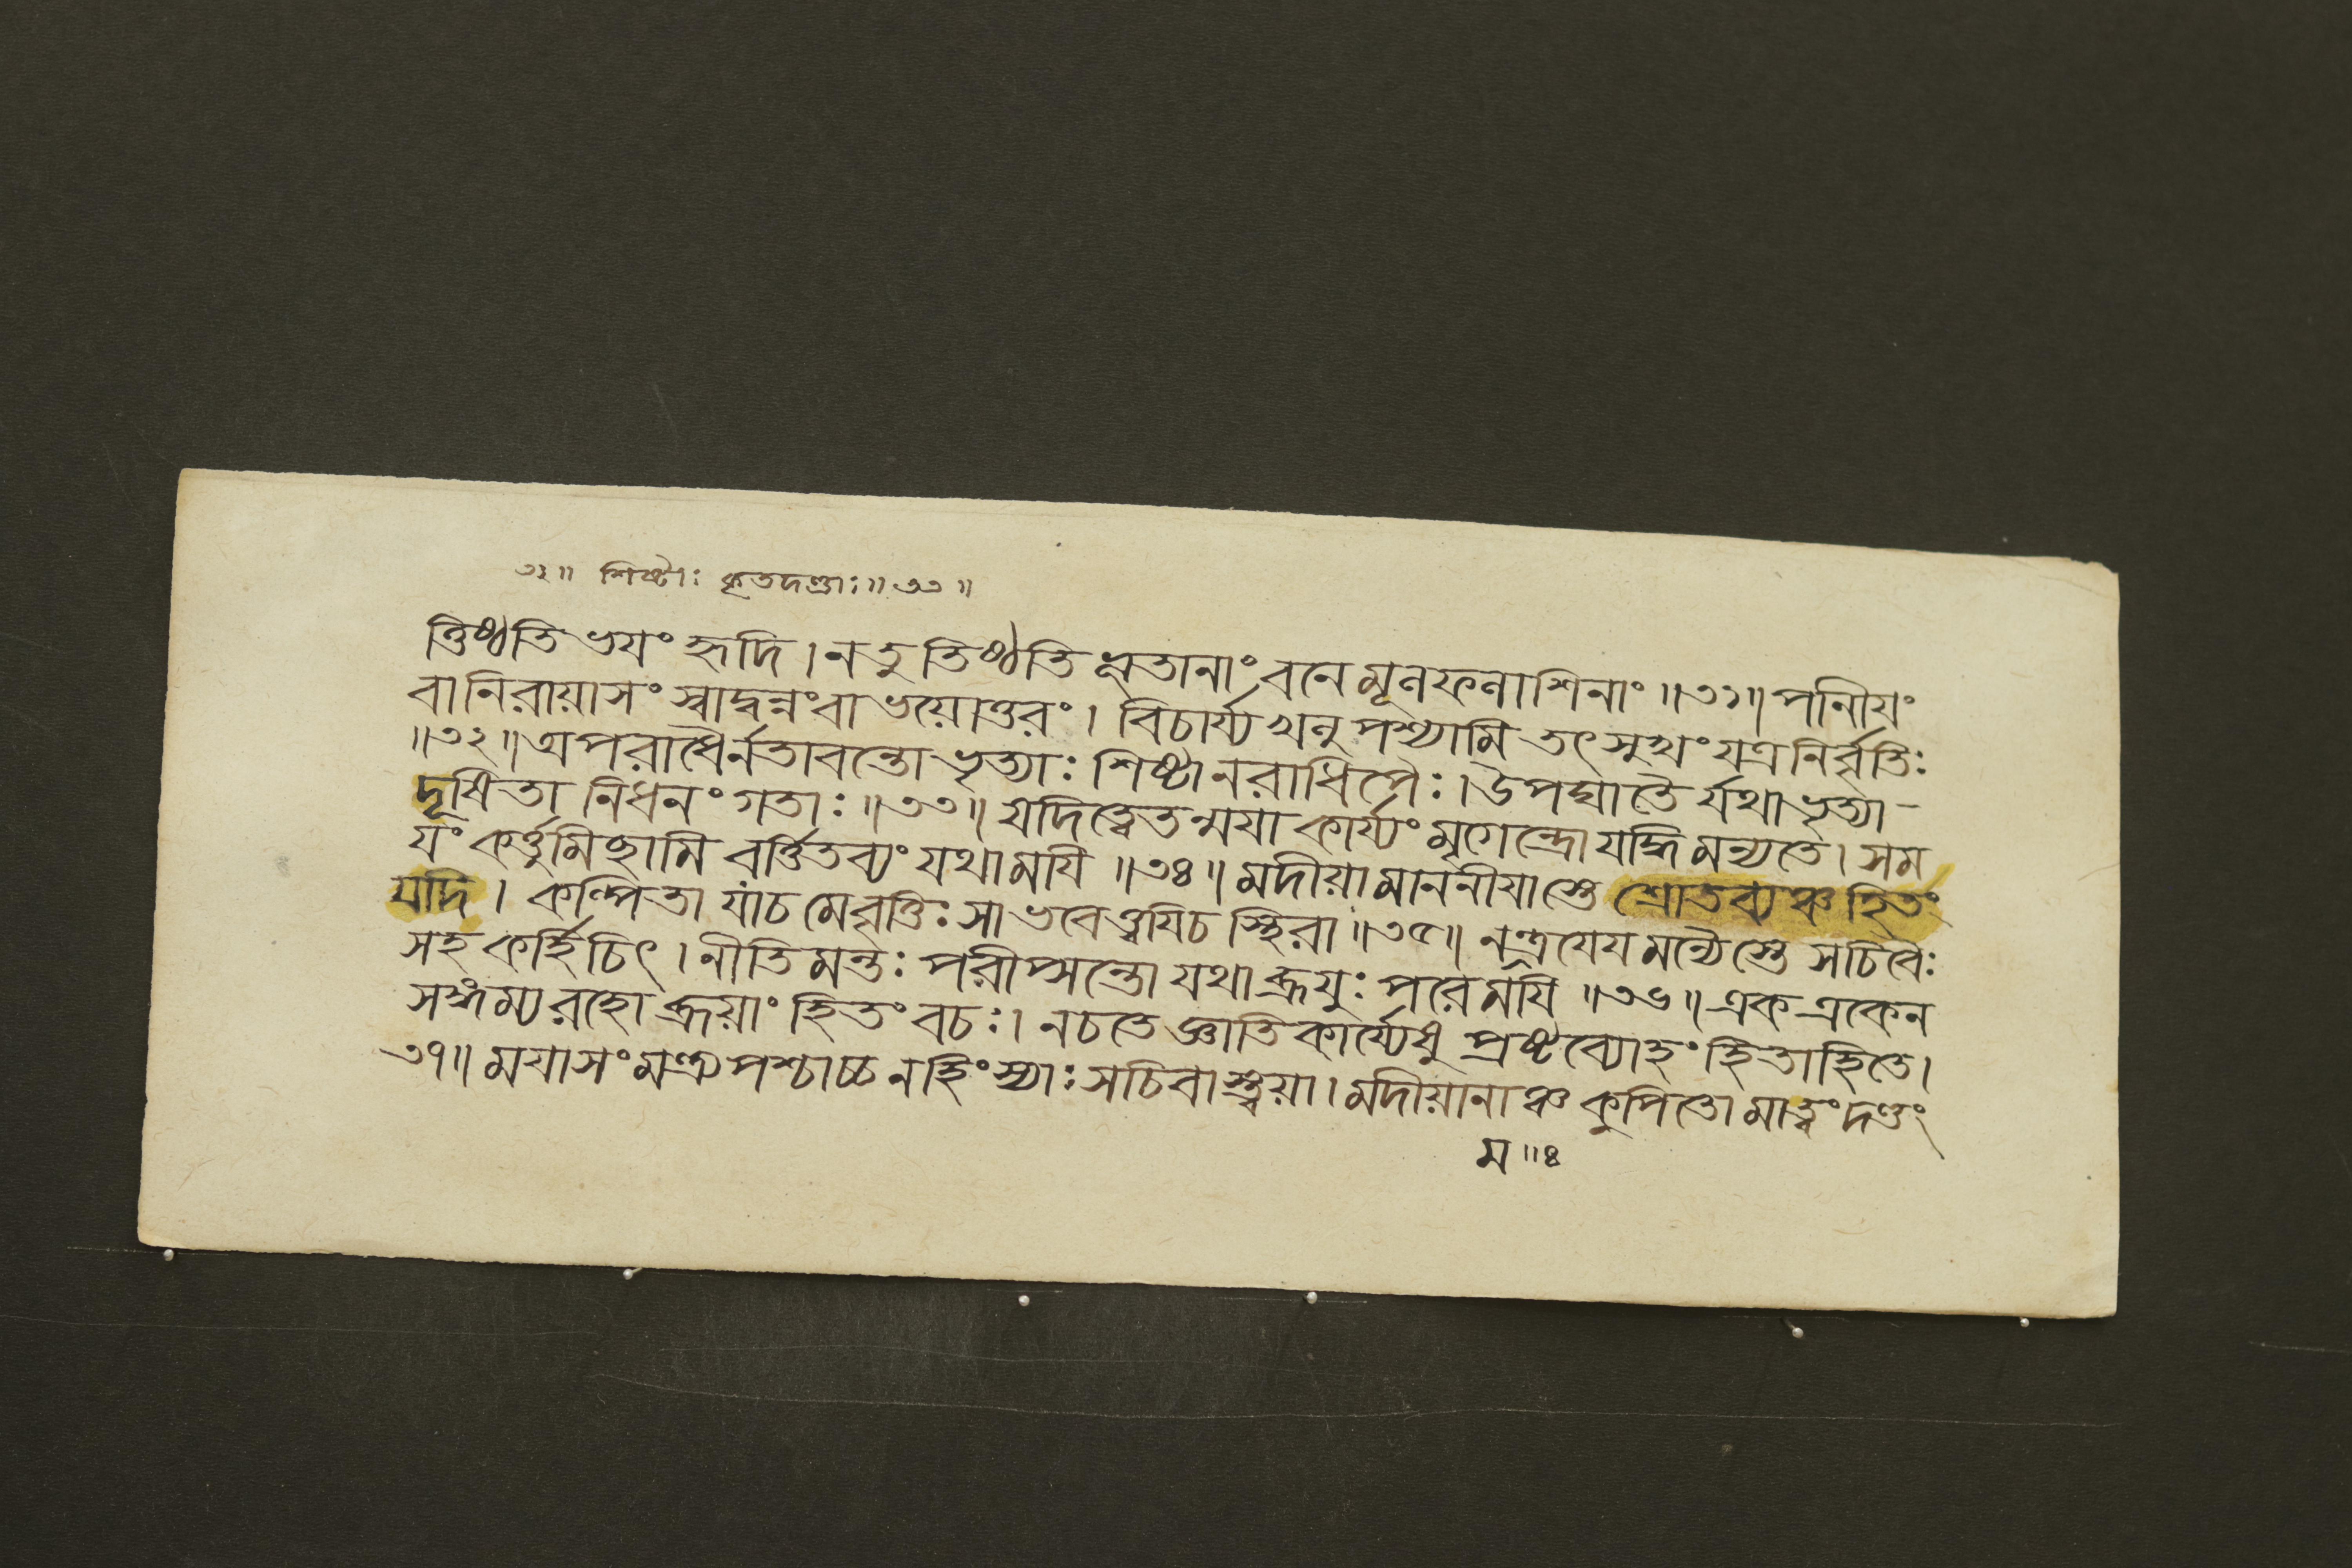 ৩২॥ শিষ্টাঃ কৃতদণ্ডাঃ॥৩৩॥
ত্তিষ্ঠতি ভযং হৃদি।নতুতিষ্ঠতি ধ্রতানাং বনেমূলফলাশিনাং॥৩১॥পানীযং
বানিরায়াসং স্বাদ্বন্নংবা ভয়োত্তরং। বিচার্য্য খলু পশ্যামি তৎ সুখং যত্রনির্বৃতিঃ
॥৩২॥অপরাধৈর্নতাবন্তো ভৃত্যাঃ শিষ্টানরাধিপৈঃ।উপঘাতৈ র্যথাভৃত্যা-
দূষিতা নিধনং গতাঃ॥৩৩॥ যদিত্বেতন্মযা কার্য্যং মৃগেন্দ্রো যদ্দি মন্যতে। সম
যং কর্ত্তুমিচ্ছামি বর্ত্তিতব্যং যথামযি॥৩৪॥ মদীয়ামাননীযাস্তে শ্রোতব্যঞ্চহিতং
যদি। কল্পিতা যাচমেবৃত্তিঃ সা ভবেত্ত্বযিচ স্থিরা॥৩৫॥ নমন্ত্রযেয মন্যৈস্তে সচিবৈঃ
সহ কর্হিচিৎ।নীতিমন্তঃ পরীপ্সন্তো যথাব্রূযুঃ পরেমযি॥৩৬॥একএকেন
সঙ্গম্যরহো ব্রূয়াং হিতং বচঃ। নচতে জ্ঞাতিকার্য্যেষু প্রষ্টব্যোহং হিতাহিতে।
৩৭॥ মযাসংমন্ত্র্য পশ্চাচ্চ নহিংস্যাঃ সচিবাস্ত্বয়া।মদীয়ানাঞ্চ কুপিতো মাত্বংদণ্ডং
ম॥৪